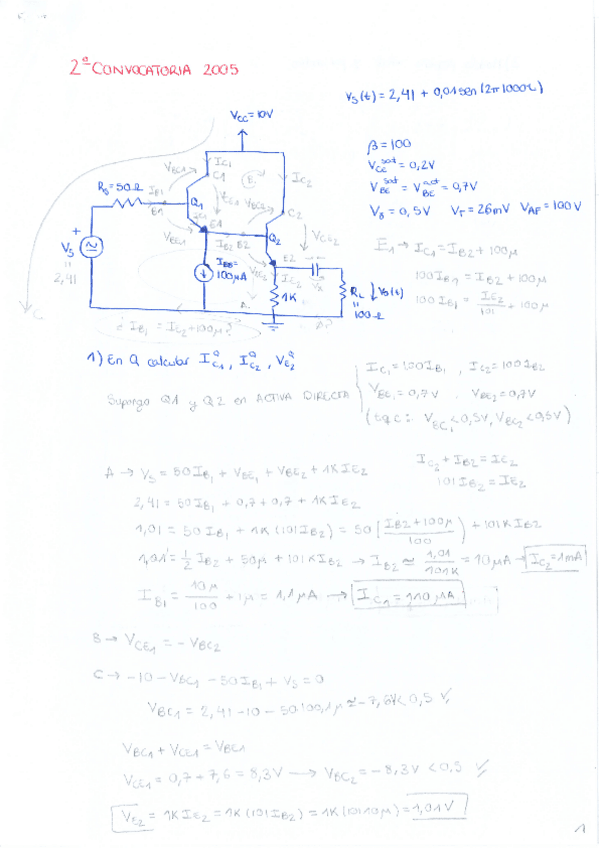 2ª CONVOCATORIA 2005
Vs(t) = 2,41 + 0,01 sen (2π1000t)
Vcc = 10V
β = 100
V_CE^sat = 0,2V
V_BE^sat = V_BE^act = 0,7V
Vγ = 0,5V V_T = 26mV V_AF = 100V
Rs = 50Ω
I_B1
E1
V_BC1
I_C1
C1
Q1
V_BE1
V_BC2
I_C2
C2
V_CE2
Q2
I_B2 B2
I_BB = 100μA
E2
1K
R_L
100Ω
Vo(t)
+
Vs
2,41
C
E1 → I_C1 = I_B2 + 100μ
100 I_B1 = I_B2 + 100μ
100 I_B1 = I_E2/101 + 100μ
¿ I_B1 = I_C2 + 100μ?
1) En Q calcular I_C1^Q, I_C2^Q, V_E2^Q
Supongo Q1 y Q2 en ACTIVA DIRECTA
I_C1 = 100 I_B1 , I_C2 = 100 I_B2
V_BE1 = 0,7V , V_BE2 = 0,7V
(tq c: V_BC1 < 0,5V, V_BC2 < 0,5V)
A → Vs = 50 I_B1 + V_BE1 + V_BE2 + 1K I_E2
I_C2 + I_B2 = I_C2
101 I_B2 = I_E2
2,41 = 50 I_B1 + 0,7 + 0,7 + 1K I_E2
1,01 = 50 I_B1 + 1K (101 I_B2) = 50 ( (I_B2 + 100μ)/100 ) + 101K I_B2
1,01 = 1/2 I_B2 + 50μ + 101K I_B2 → I_B2 ≃ 1,01/101K = 10μA → I_C2 = 1mA
I_B1 = 10μ/100 + 1μ = 1,1μA → I_C1 = 110μA
B → V_CE1 = -V_BC2
C → -10 - V_BC1 - 50 I_B1 + Vs = 0
V_BC1 = 2,41 - 10 - 50·100,1μ ≃ -7,6V < 0,5 V
V_BC1 + V_CE1 = V_BE1
V_CE1 = 0,7 + 7,6 = 8,3V → V_BC2 = -8,3V < 0,5
V_E2 = 1K I_E2 = 1K (101 I_B2) = 1K (101 10μ) = 1,01V
1